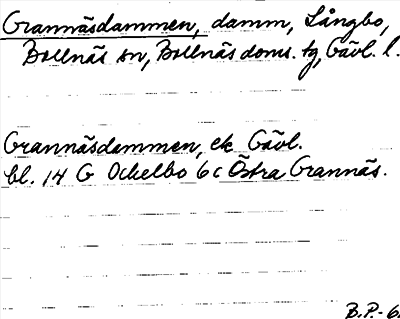 Grannäsdammen, damm, Långbo,
Bollnäs sn, Bollnäs doms. tg, Gävl. l.
Grannäsdammen, ek Gävl.
bl. 14 G Ockelbo 6c Östra Grannäs.
B.P.-6